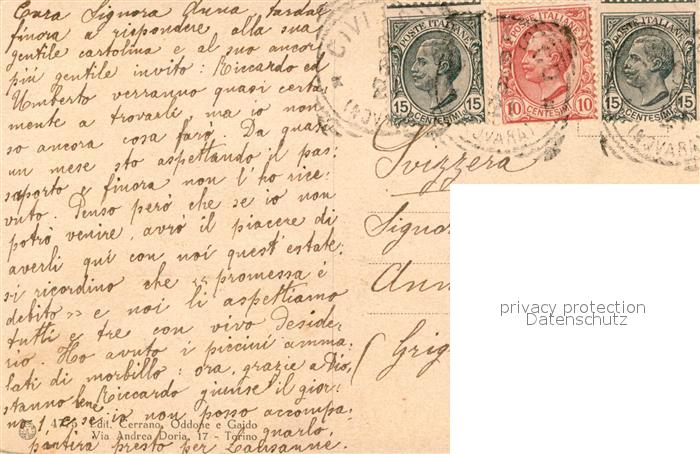 Cara Signora Anna, tardai
finora a rispondere alla sua
gentile cartolina e al suo ancor
più gentile invito: Riccardo ed
Umberto verranno quasi certa-
mente a trovarli ma io non
so ancora cosa farò. Da quasi
un mese sto aspettando il pas-
saporto e finora non l'ho rice-
vuto. Penso però che se io non
potrò venire, avrò il piacere di
averli qui con noi quest'estate.
si ricordino che "promessa è
debito" e noi li aspettiamo
tutti e tre con vivo deside-
rio. Ho avuto i piccini amma-
lati di morbillo: ora, grazie a Dio,
stanno bene. Riccardo giunse il gior-
no 1 e se io non posso accompa-
gnarlo,
partirà presto per Lausanne.
Edit. Cerrano, Oddone e Gaido
Via Andrea Doria, 17 - Torino
POSTE ITALIANE
15 15
CENTESIMI
POSTE ITALIANE
10 10
CENTESIMI
POSTE ITALIANE
15 15
CENTESIMI
(NOVARA)
(NOVARA)
Svizzera
Signor
Ann
(Grig
privacy protection
Datenschutz